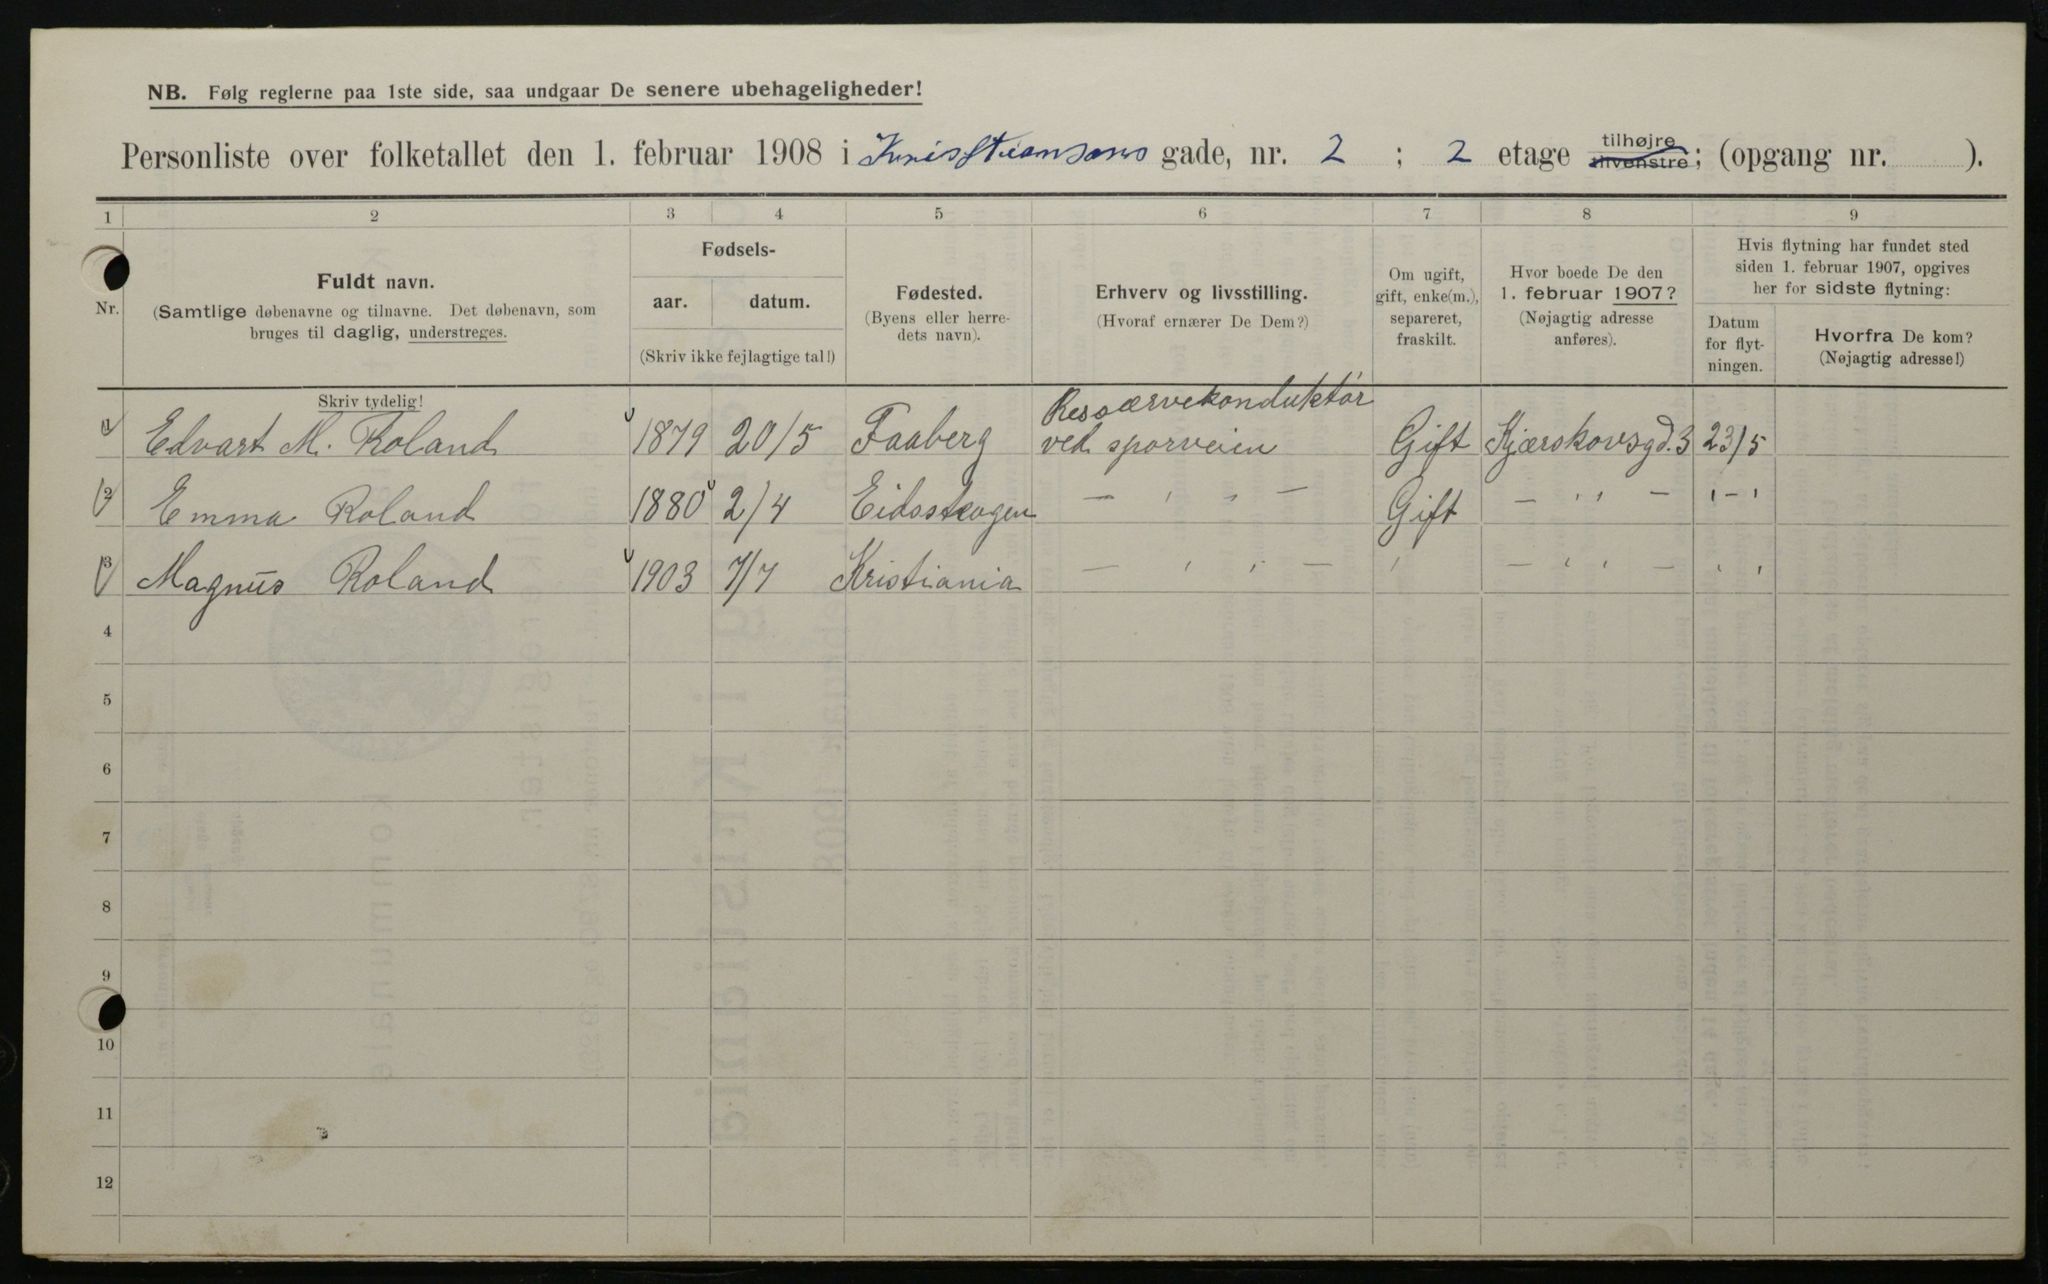 NB. Følg reglerne paa 1ste side, saa undgaar De senere ubehageligheder!
Personliste over folketallet den 1. februar 1908 i Kristiansans gade, nr. 2 ; 2 etage tilhøjre tilvenstre; (opgang nr. ).
1 2 3 4 5 6 7 8 9
Nr.
Fuldt navn.
(Samtlige døbenavne og tilnavne. Det døbenavn, som
bruges til daglig, understreges.
Skriv tydelig!
Fødsels-
aar. datum.
(Skriv ikke fejlagtige tal!)
Fødested.
(Byens eller herre-
dets navn).
Erhverv og livsstilling.
(Hvoraf ernærer De Dem?)
Om ugift,
gift, enke(m.),
separeret,
fraskilt.
Hvor boede De den
1. februar 1907?
(Nøjagtig adresse
anføres).
Hvis flytning har fundet sted
siden 1. februar 1907, opgives
her for sidste flytning:
Datum
for flyt-
ningen.
Hvorfra De kom?
(Nøjagtig adresse!)
Ressærvekonduktør
1 Edvart M. Roland 1879 20/5 Faaberg ved sporveien Gift Kjærskovsgd. 3 23/5
2 Emma Roland 1880 2/4 Eidsskogen — " — Gift — " — "-"
3 Magnus Roland 1903 7/7 Kristiania — " — " — " — "
4
5
6
7
8
9
10
11
12